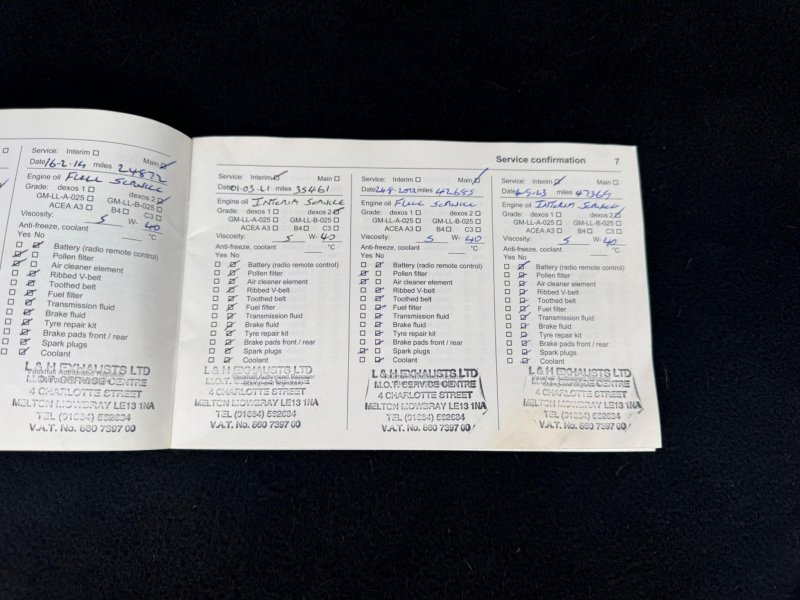 Service: Interim ☐
Main ☑
Date 16-2-19 miles 24872
Engine oil FULL SERVICE
Grade: dexos 1 ☐ dexos 2 ☑
GM-LL-A-025 ☐ GM-LL-B-025 ☐
ACEA A3 ☐ B4 ☐ C3 ☐
Viscosity: 5 W- 40
Anti-freeze, coolant °C
Yes No
Battery (radio remote control)
Pollen filter
Air cleaner element
Ribbed V-belt
Toothed belt
Fuel filter
Transmission fluid
Brake fluid
Tyre repair kit
Brake pads front / rear
Spark plugs
Coolant
L & H EXHAUSTS LTD
M.O.T. SERVICE CENTRE
4 CHARLOTTE STREET
MELTON MOWBRAY LE13 1NA
TEL (01664) 562634
V.A.T. No. 660 7397 00
Service confirmation 7
Service: Interim ☑ Main ☐
Date 01.03.21 miles 35461
Engine oil INTERIM SERVICE
Grade: dexos 1 ☐ dexos 2 ☑
GM-LL-A-025 ☐ GM-LL-B-025 ☐
ACEA A3 ☐ B4 ☐ C3 ☐
Viscosity: 5 W- 40
Anti-freeze, coolant °C
Yes No
Battery (radio remote control)
Pollen filter
Air cleaner element
Ribbed V-belt
Toothed belt
Fuel filter
Transmission fluid
Brake fluid
Tyre repair kit
Brake pads front / rear
Spark plugs
Coolant
L & H EXHAUSTS LTD
M.O.T. SERVICE CENTRE
4 CHARLOTTE STREET
MELTON MOWBRAY LE13 1NA
TEL (01664) 562634
V.A.T. No. 660 7397 00
Service: Interim ☐ Main ☑
Date miles 42685
Engine oil FULL SERVICE
Grade: dexos 1 ☐ dexos 2 ☐
GM-LL-A-025 ☐ GM-LL-B-025 ☐
ACEA A3 ☐ B4 ☐ C3 ☐
Viscosity: 5 W- 40
Anti-freeze, coolant °C
Yes No
Battery (radio remote control)
Pollen filter
Air cleaner element
Ribbed V-belt
Toothed belt
Fuel filter
Transmission fluid
Brake fluid
Tyre repair kit
Brake pads front / rear
Spark plugs
Coolant
L & H EXHAUSTS LTD
M.O.T. SERVICE CENTRE
4 CHARLOTTE STREET
MELTON MOWBRAY LE13 1NA
TEL (01664) 562634
V.A.T. No. 660 7397 00
Service: Interim ☑ Main ☐
Date miles 47369
Engine oil INTERIM SERVICE
Grade: dexos 1 ☐ dexos 2 ☑
GM-LL-A-025 ☐ GM-LL-B-025 ☐
ACEA A3 ☐ B4 ☐ C3 ☐
Viscosity: 5 W- 40
Anti-freeze, coolant °C
Yes No
Battery (radio remote control)
Pollen filter
Air cleaner element
Ribbed V-belt
Toothed belt
Fuel filter
Transmission fluid
Brake fluid
Tyre repair kit
Brake pads front / rear
Spark plugs
Coolant
L & H EXHAUSTS LTD
M.O.T. SERVICE CENTRE
4 CHARLOTTE STREET
MELTON MOWBRAY LE13 1NA
TEL (01664) 562634
V.A.T. No. 660 7397 00